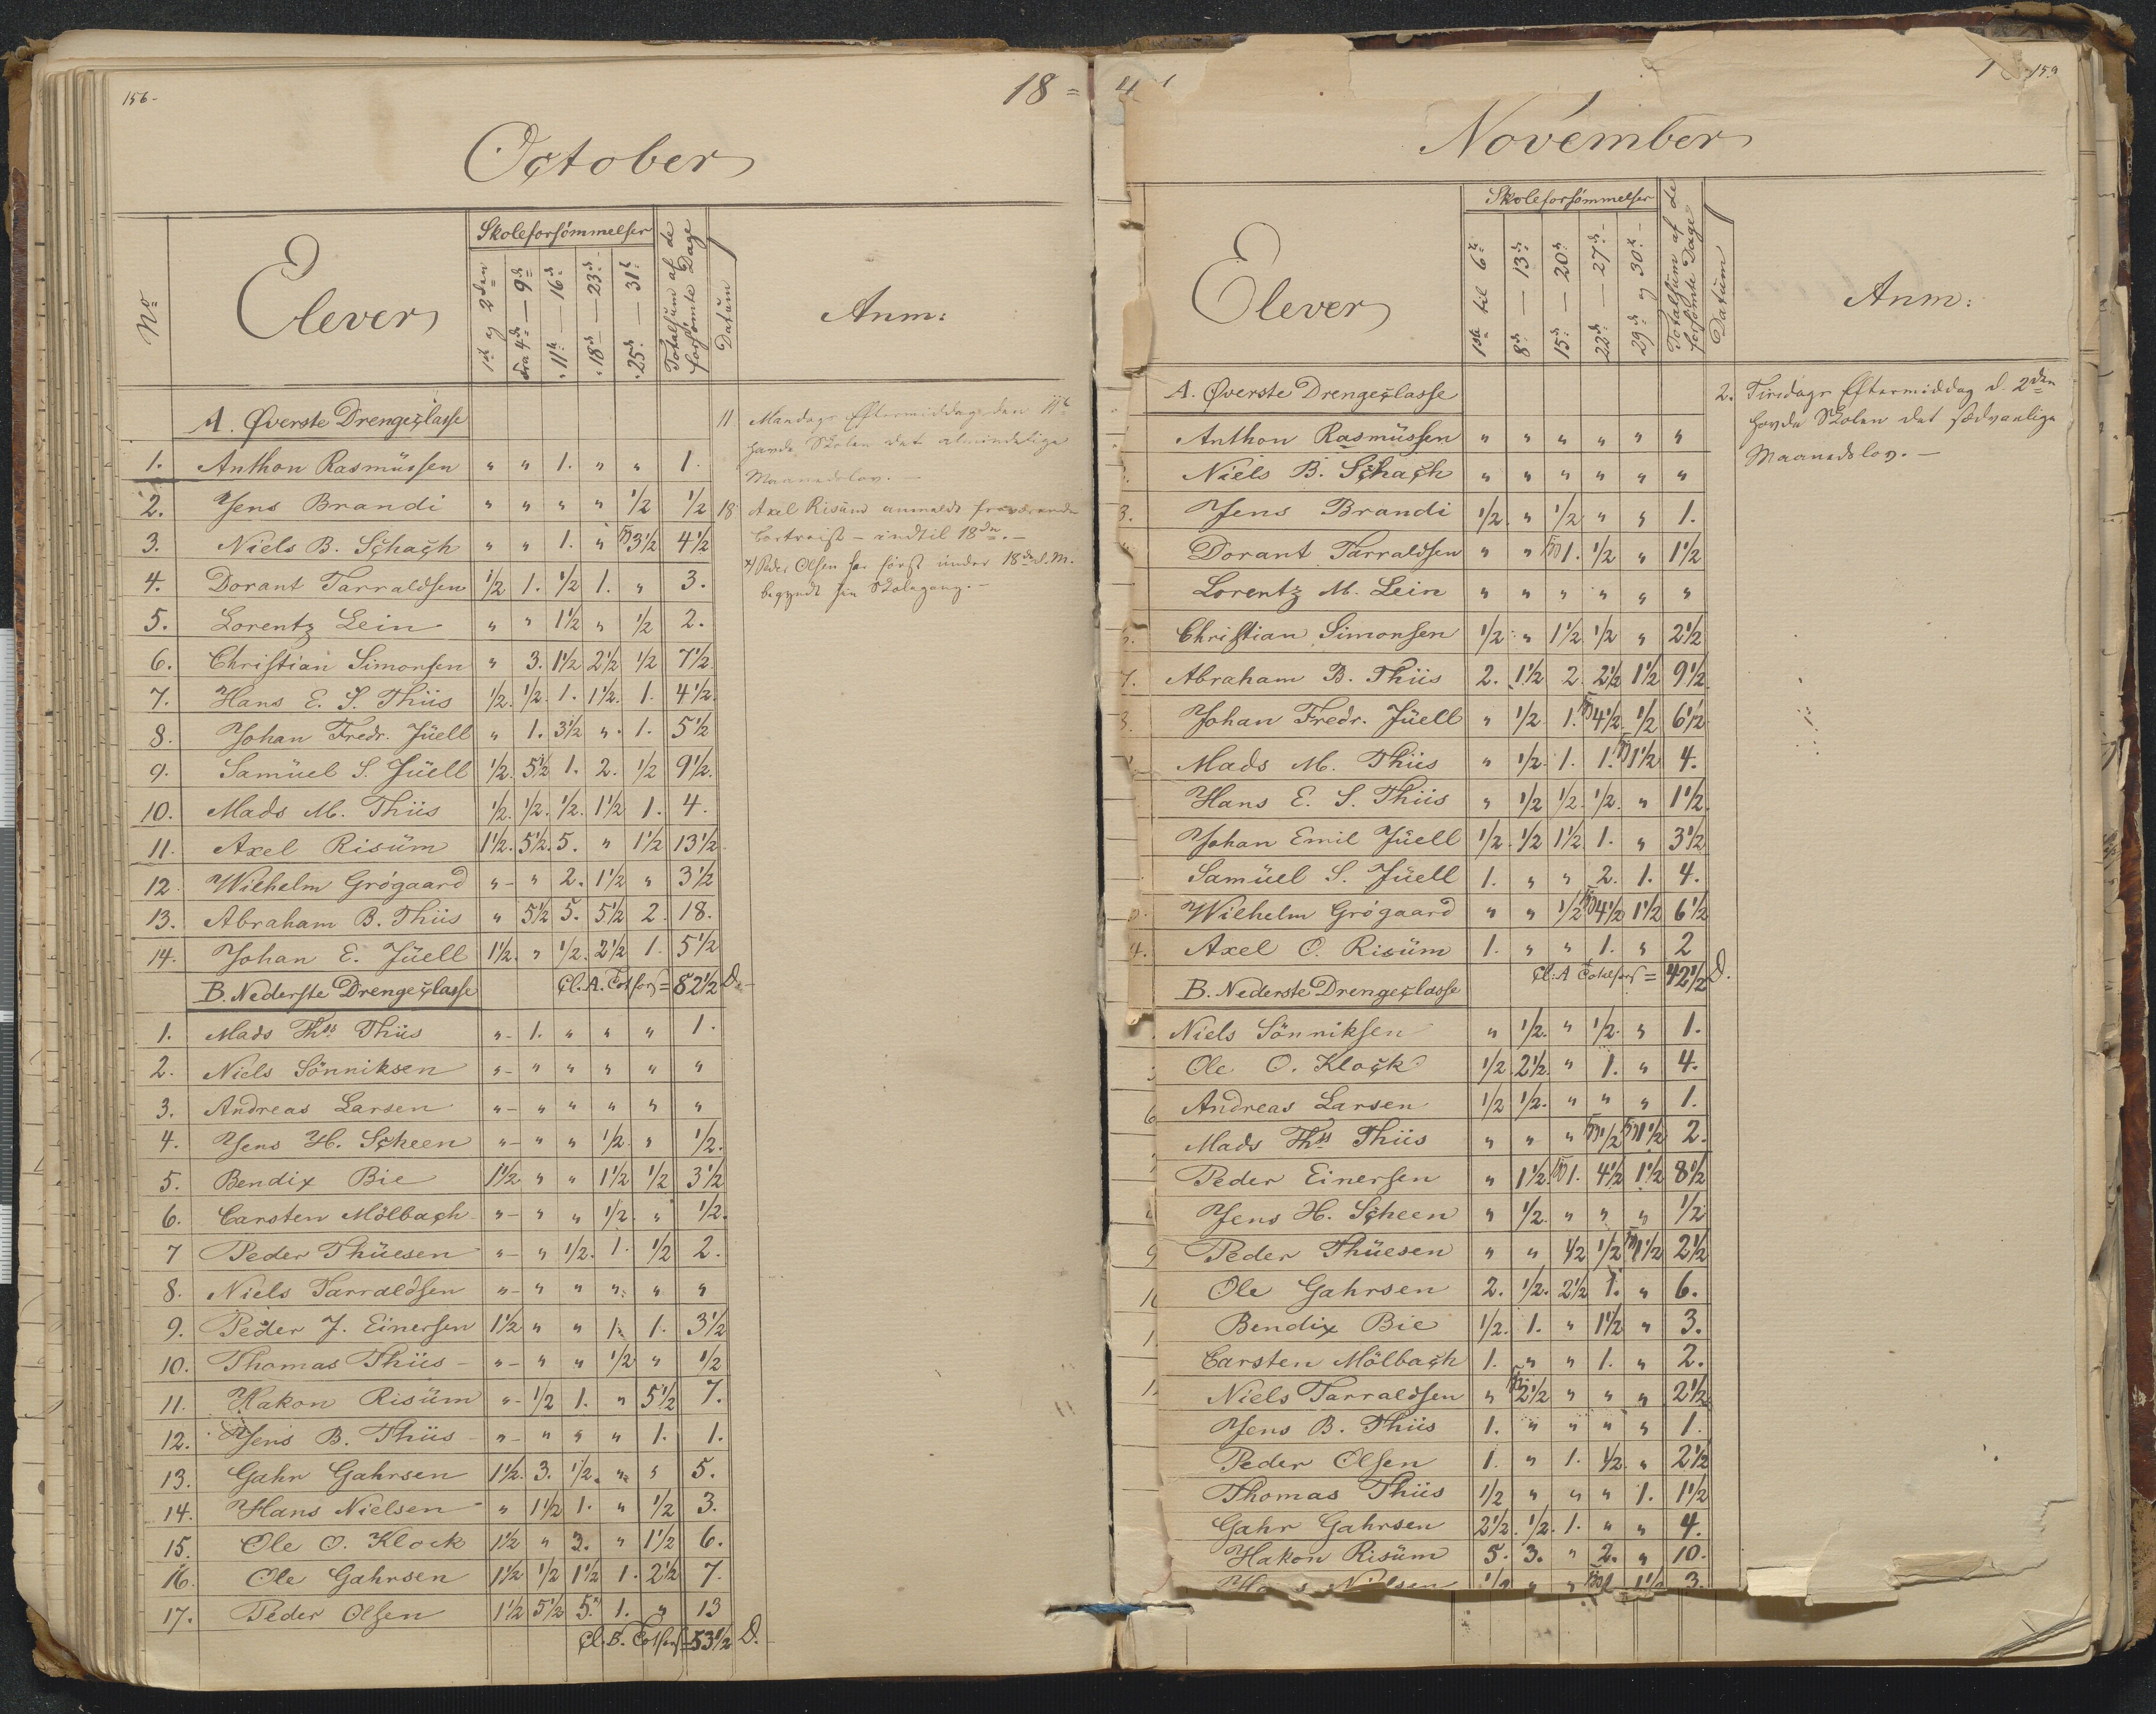 156-
18 =
October
No
Elever
Skoleforsømmelser
1ste og 2den
fra 4de — 9de
" 11te — 16de
" 18de — 23de
" 25de — 31te
Totalsum af de forsømte Dage
Datum
Anm:
A. Øverste Drengeclasse
1. Anthon Rasmüssen " " 1. " " 1.
2. Jens Brandi " " " " 1/2 1/2
3. Niels B. Schach " " 1. " 3 1/2 4 1/2
4. Dorant Tarraldsen 1/2 1. 1/2 1. " 3.
5. Lorentz Lein " " 1 1/2 " 1/2 2.
6. Christian Simonsen " 3. 1 1/2 2 1/2 1/2 7 1/2
7. Hans E. S. Thiis 1/2. 1/2. 1. 1 1/2. 1. 4 1/2.
8. Johan Fredr. Jüell " 1. 3 1/2 ". 1. 5 1/2
9. Samüel S. Jüell 1/2. 5 1/2 1. 2. 1/2 9 1/2.
10. Mads M. Thiis 1/2. 1/2. 1/2. 1 1/2 1. 4.
11. Axel Risüm 1 1/2. 5 1/2. 5. " 1 1/2 13 1/2.
12 Wilhelm Grøgaard "- " 2. 1 1/2 " 3 1/2
13. Abraham B. Thiis " 5 1/2 5. 5 1/2 2. 18.
14. Johan E. Jüell 1 1/2. " 1/2. 2 1/2 1. 5 1/2
Cl. A. Totfors = 82 1/2 D.
B. Nederste Drengeclasse
1. Mads Ths Thiis "- 1. " " " 1.
2. Niels Sönniksen "- " " " " "
3. Andreas Larsen "- " " " " "
4. Jens H. Scheen "- " " 1/2. " 1/2.
5. Bendix Bie 1 1/2 " " 1 1/2 1/2 3 1/2
6. Carsten Mölbach "- " " 1/2. " 1/2.
7 Peder Thüesen "- " 1/2. 1. 1/2 2.
8. Niels Tarraldsen "- " " " " "
9. Peder J. Einersen 1 1/2 " " 1. 1. 3 1/2
10. Thomas Thiis - "- " " 1/2 " 1/2
11. Hakon Risüm "- 1/2 1. " 5 1/2 7.
12. Jens B. Thiis "- " " " 1. 1.
13. Gahr Gahrsen 1 1/2. 3. 1/2. " " 5.
14. Hans Nielsen " 1 1/2 1. " 1/2 3.
15. Ole O. Klock 1 1/2 " 3. " 1 1/2 6.
16. Ole Gahrsen 1 1/2 1/2 1 1/2 1. 2 1/2 7.
17. Peder Olsen 1 1/2 5 1/2 5. 1. " 13
Cl. B. Totfors = 53 1/2 D.
11 Mandags Eftermiddag den 11te
havde Skolen det almindelige
Maanedslov. —
18 Axel Risüm anmeldt fraværende
bortreist – indtil 18de. —
x) Peder Olsen har først under 18de d. M.
begyndt sin Skolegang. —
4
159
November
Elever
Skoleforsømmelser
1ste til 6te
8de — 13de
15de — 20de
22de — 27de
29de og 30te
Totalsum af de forsømte Dage
Datum
Anm:
A. Øverste Drengeclasse
Anthon Rasmüssen " " " " " "
Niels B. Schach " " " " " "
3. Jens Brandi 1/2. " 1/2 " " 1.
Dorant Tarraldsen " " 1. 1/2 " 1 1/2
Lorentz M. Lein " " " " " "
Christian Simonsen 1/2 " 1 1/2. 1/2 " 2 1/2
7. Abraham B. Thiis 2. 1 1/2 2. 2 1/2 1 1/2 9 1/2.
Johan Fredr. Jüell " 1/2 1. 4 1/2. 1/2 6 1/2
Mads M. Thiis " 1/2. 1. 1. 1 1/2 4.
Hans E. S. Thiis " 1/2 1/2. 1/2. " 1 1/2.
Johan Emil Jüell 1/2. 1/2 1 1/2. 1. " 3 1/2
Samüel S. Jüell 1. " " 2. 1. 4.
Wilhelm Grøgaard " " 1/2 4 1/2 1 1/2 6 1/2
4. Axel O. Risüm 1. " " 1. " 2
Cl: A Totalfors = 42 1/2 D.
B. Nederste Drengeclasse
Niels Sönniksen " 1/2. " 1/2. " 1.
Ole O. Klock 1/2. 2 1/2. " 1. " 4.
6 Andreas Larsen 1/2 1/2. " " " 1.
Mads Ths Thiis " " " 1/2 1 1/2 2.
Peder Einersen " 1 1/2 1. 4 1/2 1 1/2 8 1/2
Jens H. Scheen " 1/2. " " " 1/2
9 Peder Thüesen " " 1/2 1/2 1 1/2 2 1/2
Ole Gahrsen 2. 1/2. 2 1/2 1. " 6.
Bendix Bie 1/2. 1. " 1 1/2 " 3.
Carsten Mölbach 1. " " 1. " 2.
Niels Tarraldsen " 2 1/2 " " " 2 1/2
Jens B. Thiis 1. " " " " 1.
Peder Olsen 1. " 1. 1/2. " 2 1/2
Thomas Thiis 1/2 " " " 1. 1 1/2
Gahr Gahrsen 2 1/2. 1/2. 1. " " 4.
Hakon Risüm 5. 3. " 2. " 10.
Nielsen 1/2 " " 1 1/2 3.
2. Tirsdags Eftermiddag d. 2den
havde Skolen det sædvanlige
Maanedslov. —